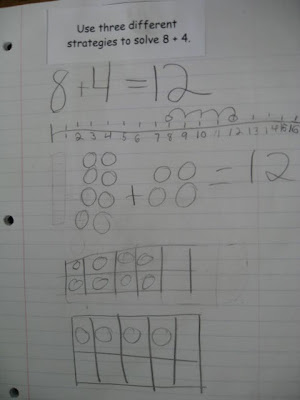 Use three different
strategies to solve 8 + 4.
8+4=12
1 2 3 4 5 6 7 8 9 10 11 12 13 14 15 16
+ =12